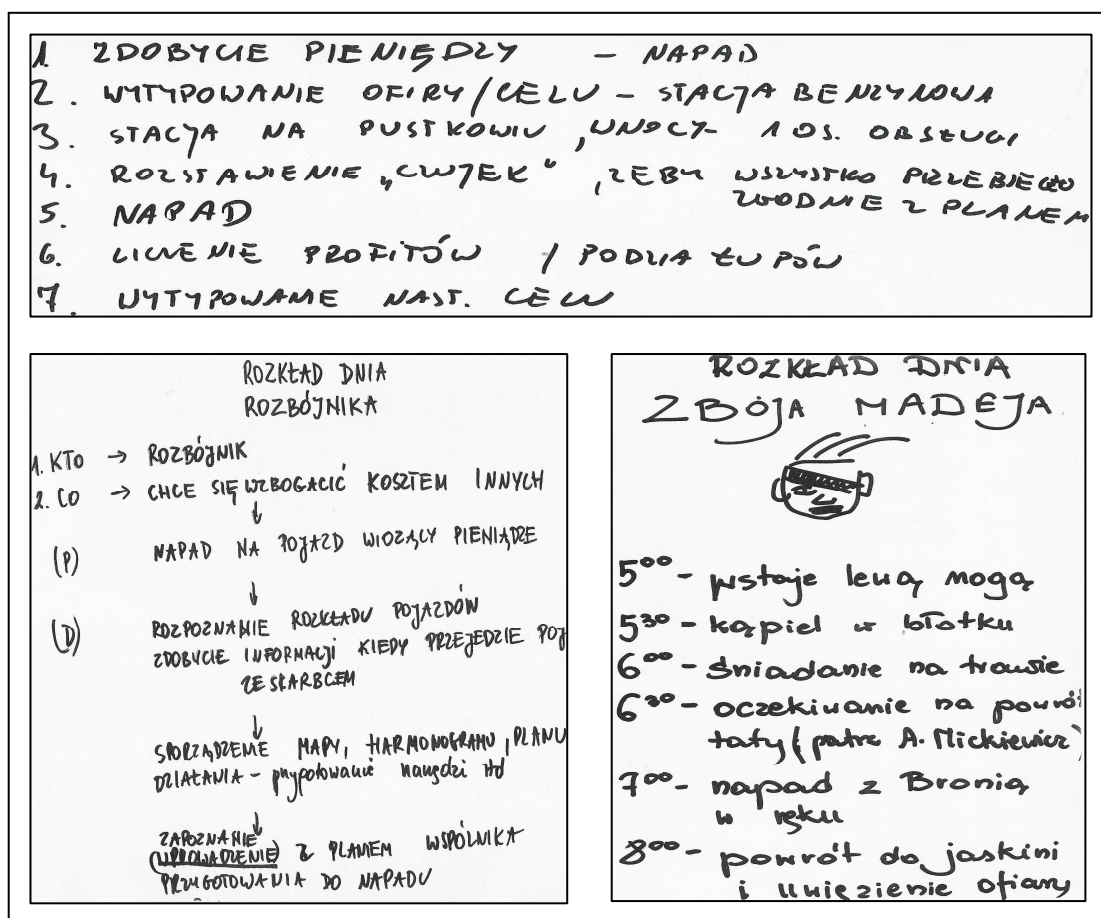 1. ZDOBYCIE PIENIĘDZY – NAPAD
2. WYTYPOWANIE OFIRY/CELU – STACJA BENZYNOWA
3. STACJA NA PUSTKOWIU, WNOCY- 1 OS. OBSŁUGI
4. ROZSTAWIENIE „CZUJEK", ŻEBY WSZYSTKO PRZEBIEGŁO
ZGODNIE Z PLANEM
5. NAPAD
6. LICZENIE PROFITÓW / PODZIAŁ ŁUPÓW
7. WYTYPOWANIE NAST. CELU
ROZKŁAD DNIA
ROZBÓJNIKA
1. KTO → ROZBÓJNIK
2. CO → CHCE SIĘ WZBOGACIĆ KOSZTEM INNYCH
↓
(P) NAPAD NA POJAZD WIOZĄCY PIENIĄDZE
↓
(D) ROZPOZNANIE ROZKŁADU POJAZDÓW
ZDOBYCIE INFORMACJI KIEDY PRZEJEDZIE POJ
ZE SKARBCEM
↓
SPORZĄDZENIE MAPY, HARMONOGRAMU, PLANU
DZIAŁANIA – przygotowanie narzędzi itd
↓
ZAPOZNANIE
(WPROWADZENIE) Z PLANEM WSPÓLNIKA
PRZYGOTOWANIA DO NAPADU
ROZKŁAD DNIA
ZBÓJA MADEJA
5⁰⁰ - wstaje lewą nogą
5³⁰ - kąpiel w błotku
6⁰⁰ - śniadanie na trawie
6³⁰ - oczekiwanie na powrót
taty (patrz A. Mickiewicz)
7⁰⁰ - napad z Bronią
w ręku
8⁰⁰ - powrót do jaskini
i uwięzienie ofiary